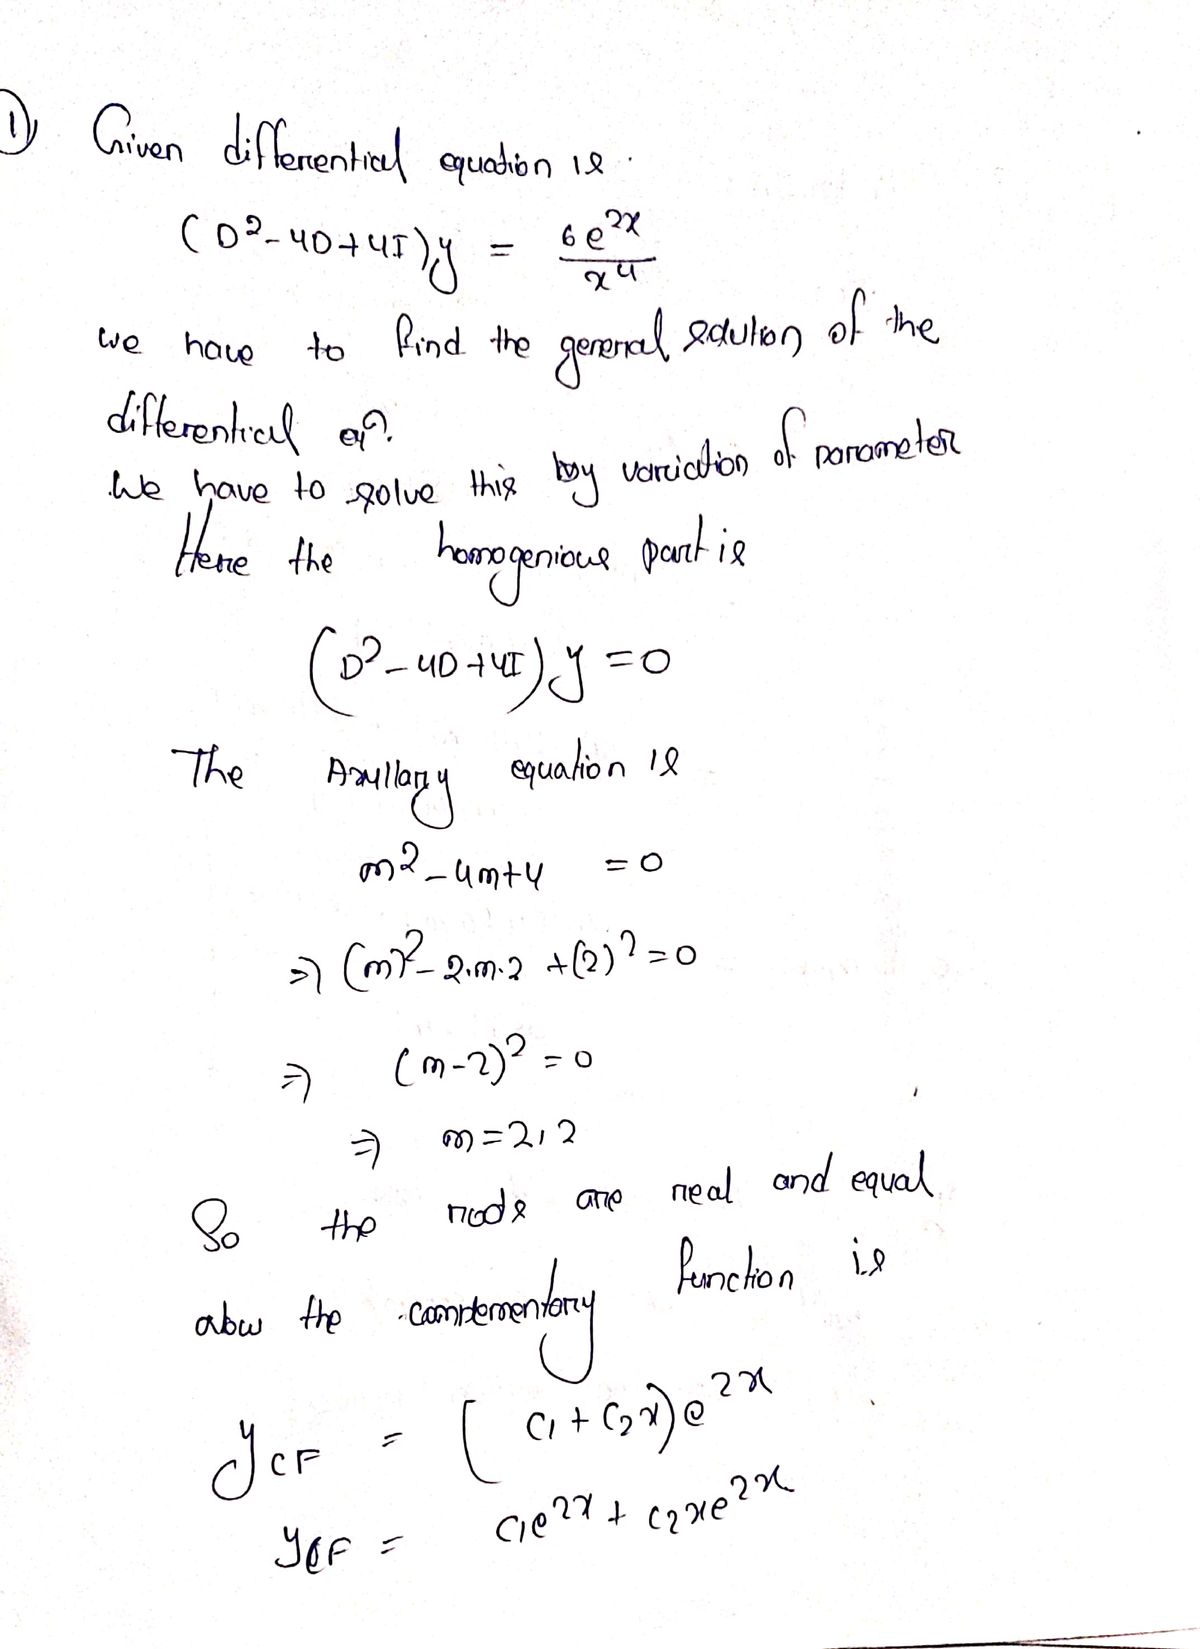 1) Given differential equation is
(D²-4D+4I)y = 6e^{2x}/x⁴
we have to find the general solution of the
differential eqn.
We have to solve this by variation of parameter
Here the homogenious part is
(D²-4D+4I)y=0
The Axullary equation is
m²-4m+4 =0
⇒ (m)²-2.m.2+(2)²=0
⇒ (m-2)²=0
⇒ m=2,2
So the roots are real and equal
the complementary function is
y_{CF} = (c₁+c₂x)e^{2x}
y_{CF} = c₁e^{2x}+c₂xe^{2x}